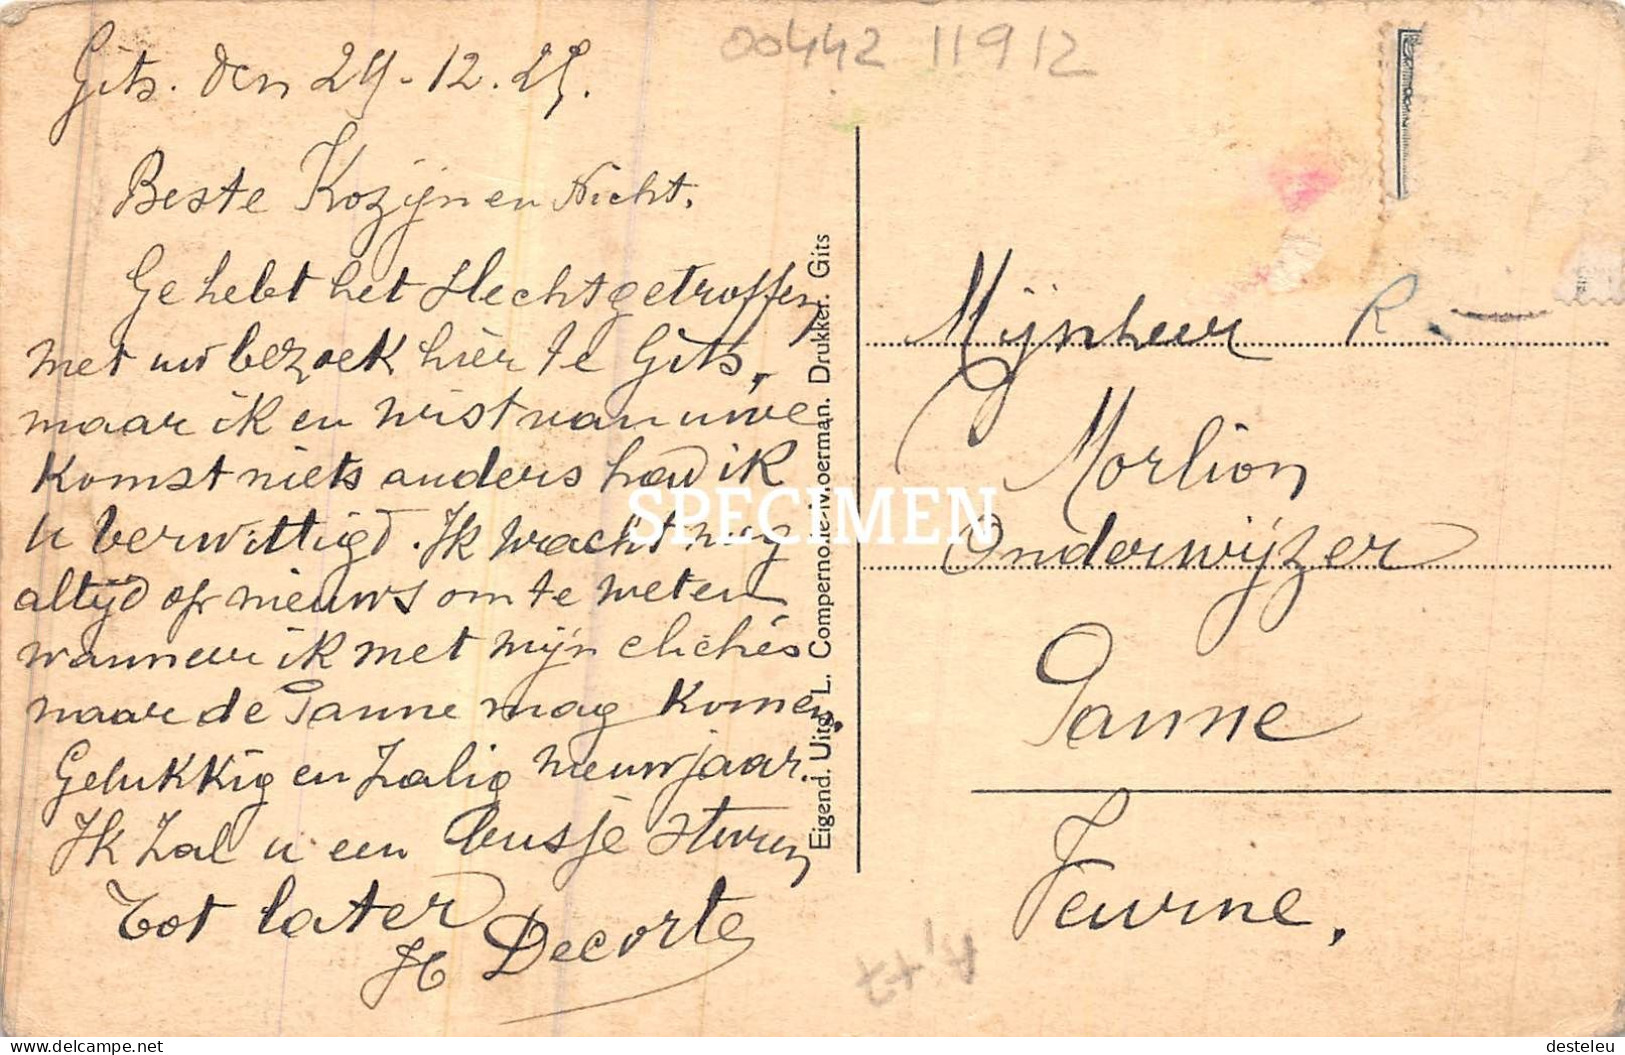 00442 11912
Gits. den 24-12.25.
Beste Kozijn en Nicht.
Ge hebt het slecht getroffen
met uw bezoek hier te Gits,
maar ik en wist van uwe
komst niets anders had ik
u verwittigd. Ik wacht nog
altijd op nieuws om te weten
wanneer ik met mijn clichés
naar de Panne mag komen.
Gelukkig en zalig nieuwjaar.
Ik zal u een busje sturen
Tot later
H Decorte
Eigend. Uitg. L. Compernolle-Moerman. Drukker. Gits
Mijnheer R.
Morlion
Onderwijzer
Panne
Veurne.
SPECIMEN
delcampe.net
desteleu